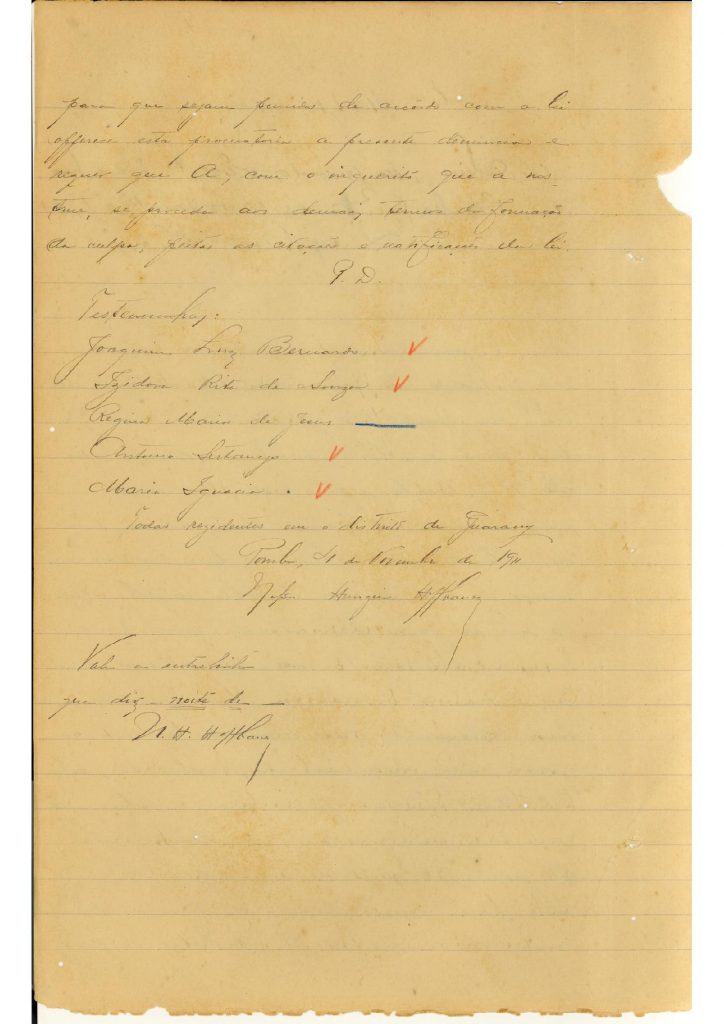 para que sejam punidos de accôrdo com a lei
offerece esta promotoria a presente denuncia e
requer que A, com o inquerito que a ins-
true, se proceda aos demais termos da formação
da culpa, feitas as citações e notificações da lei.
P. D.
Testemunhas:
Joaquim Luiz Bernardo
Izidora Rita de Souza
Regina Maria de Jesus
Antonio
Maria Ignacia.
Todas rezidentes em o districto de Guarany
Pomba, 4 de Novembro de 1911
Hoffbauer
Vale a entrelinha
que diz - noite de -
N. H. Hoffbauer